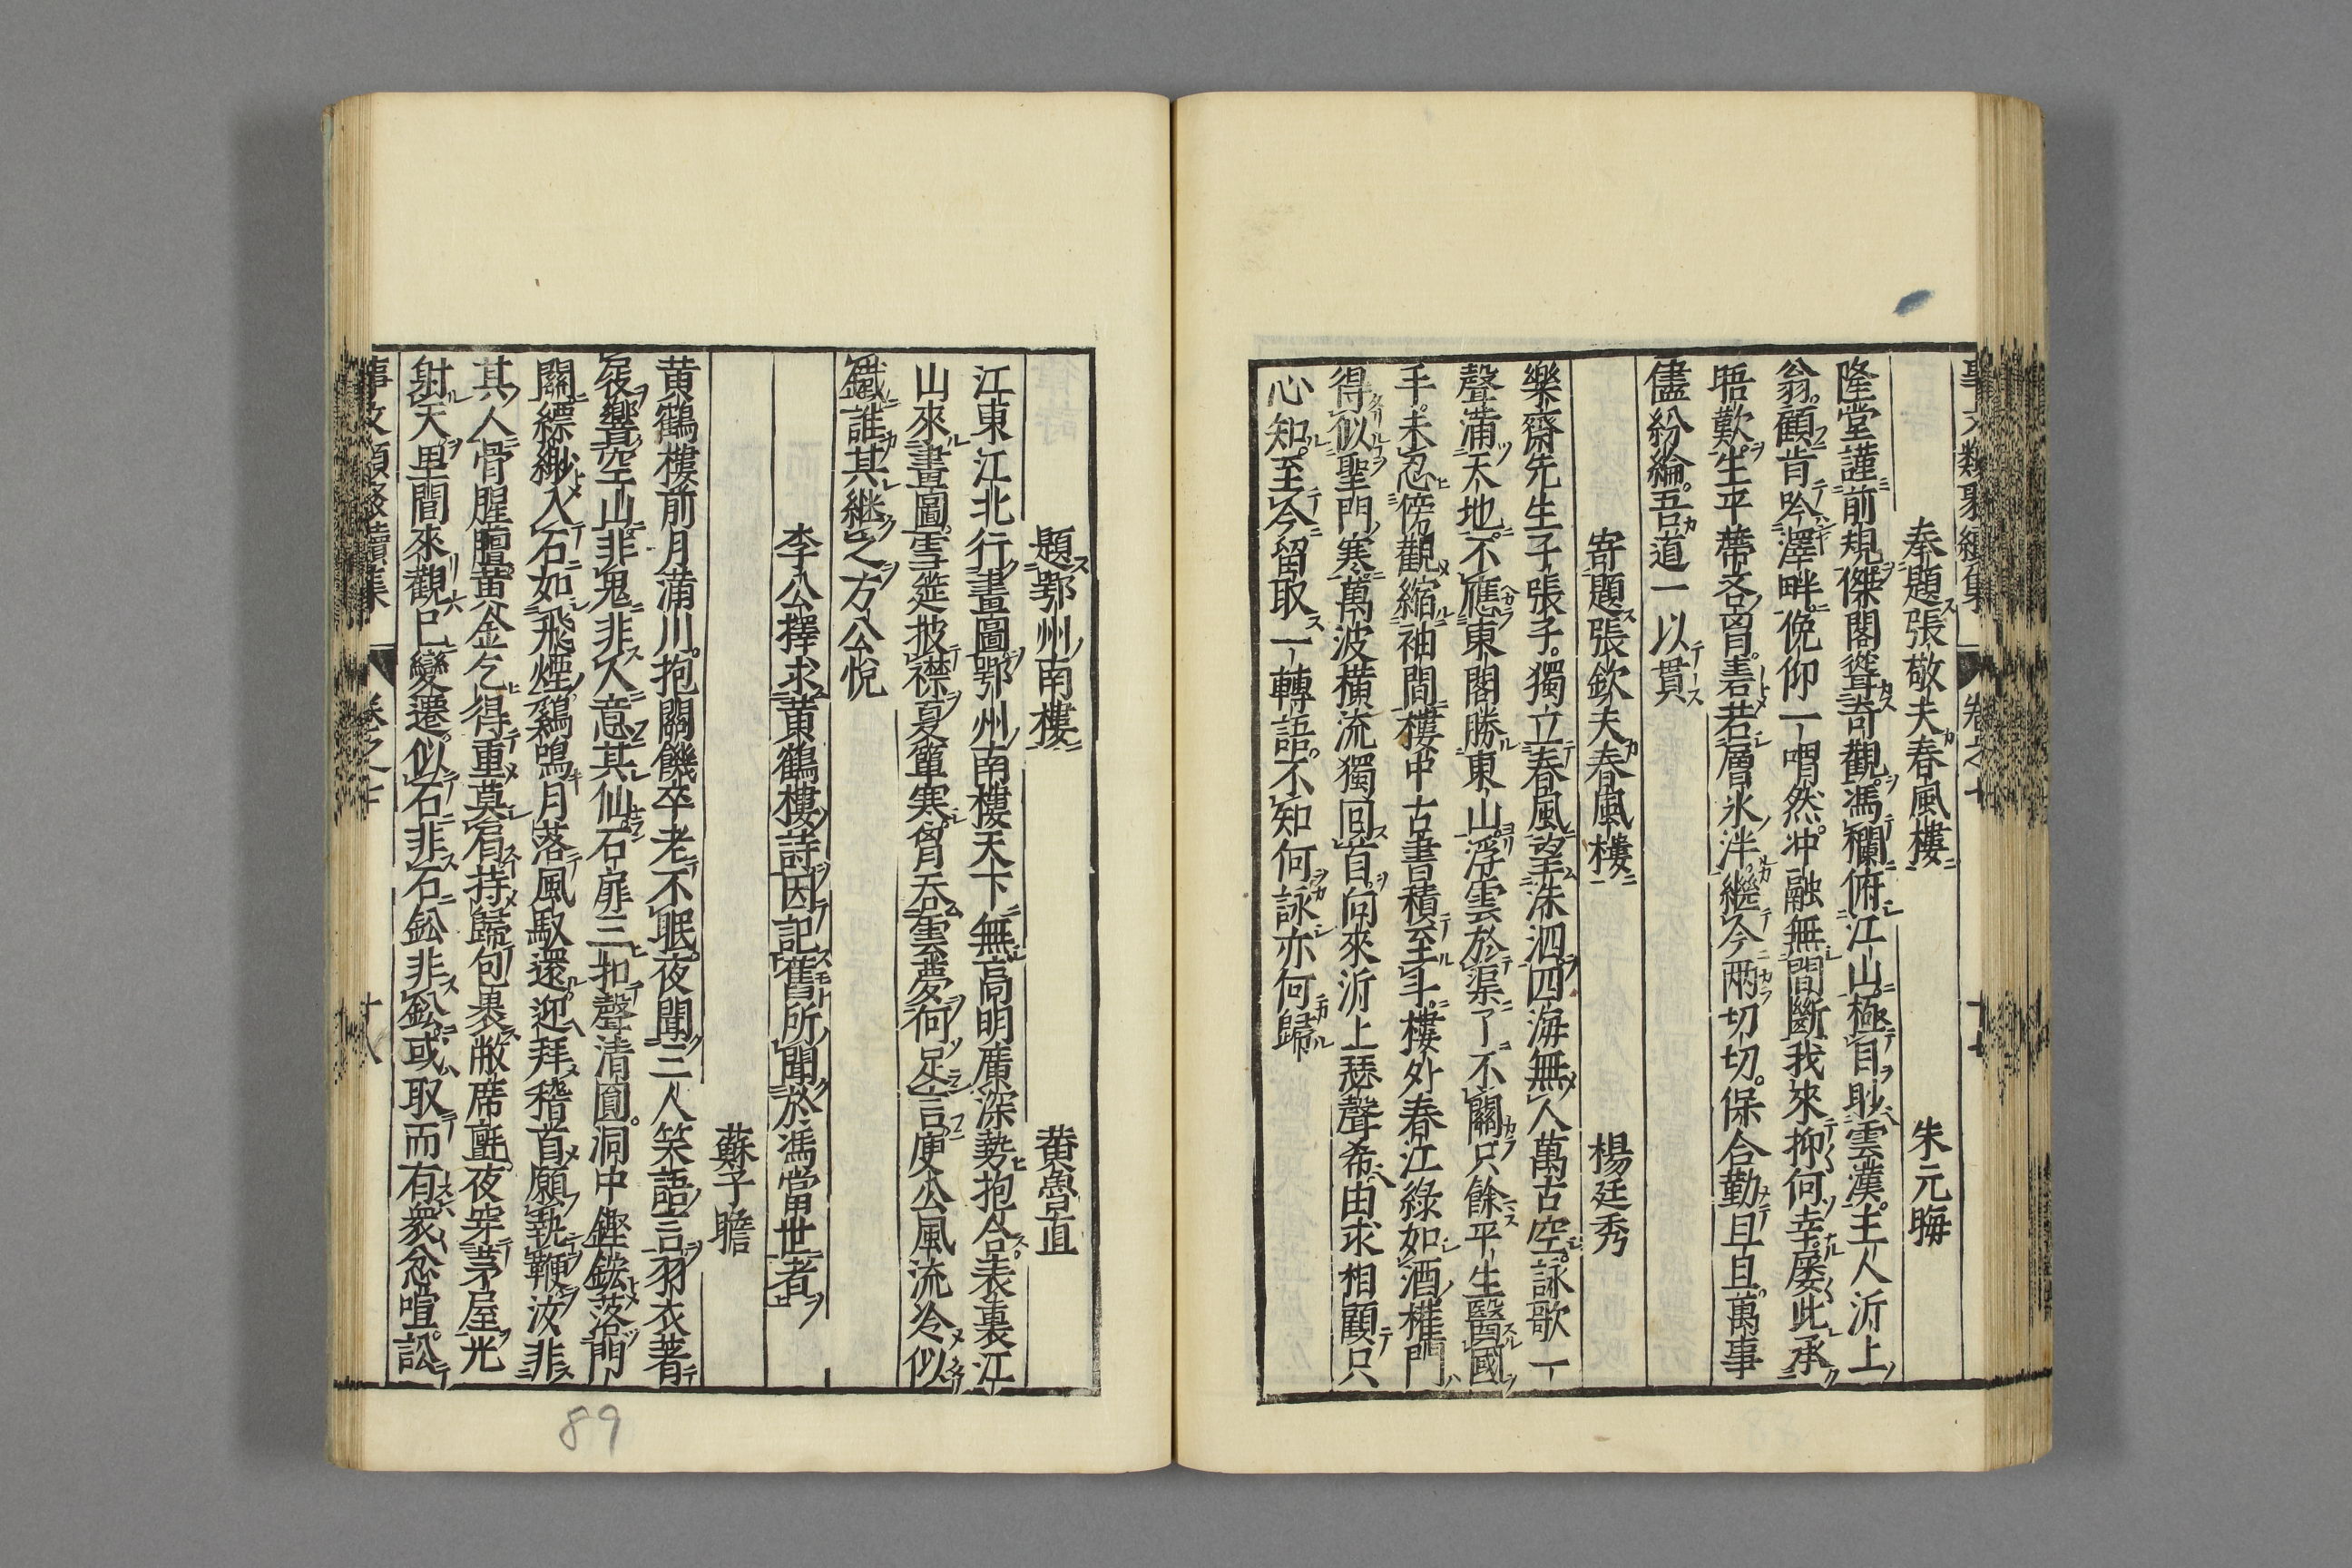 事文類聚續集 卷之七
奉題張敬夫春風樓 朱元晦
隆堂謹前規傑閣聳奇觀馮欄俯江山極目眇雲漢主人沂上
翁顧肯吟澤畔俛仰一喟然冲融無間斷我來抑何幸屡此承
晤歎生平帶吝胷砉若層氷泮繼今兩切切保合勤旦旦萬事
儘紛綸吾道一以貫
寄題張欽夫春風樓 楊廷秀
樂齋先生子張子獨立春風望洙泗四海無人萬古空詠歌一
聲蒲天地不應東閣勝東山浮雲於渠了不關只餘平生醫國
手未忍傍觀縮袖間樓中古書積至斗樓外春江綠如酒權門
得似聖門寒萬波横流獨回首向來沂上瑟聲希由求相顧只
心知至今留取一轉語不知何詠亦何歸
題鄂州南樓 黄魯直
江東江北行畫圖鄂州南樓天下無高明廣深勢抱合表裏江
山來畫圖雪筵披襟夏簟寒胷吞雲夢何足言庾公風流冷似
鐵誰其継之方公悅
李公擇求黄鶴樓詩因記舊所聞於馮當世者
蘇子瞻
黄鶴樓前月蒲川抱關饑卒老不眠夜聞三人笑語言羽衣著
屐響空山非鬼非人意其仙石扉三扣聲清圓洞中鏗鈜落門
關縹緲入石如飛煙鷄鳴月落風馭還迎拜稽首願執鞭汝非
其人骨腥羶黄金乞得重莫肩持歸包裹敝席氈夜穿茅屋光
射天里閭來觀已變遷似石非石鈆非鈆或取而有衆忿喧訟
事文類聚續集 卷之七 十八
89